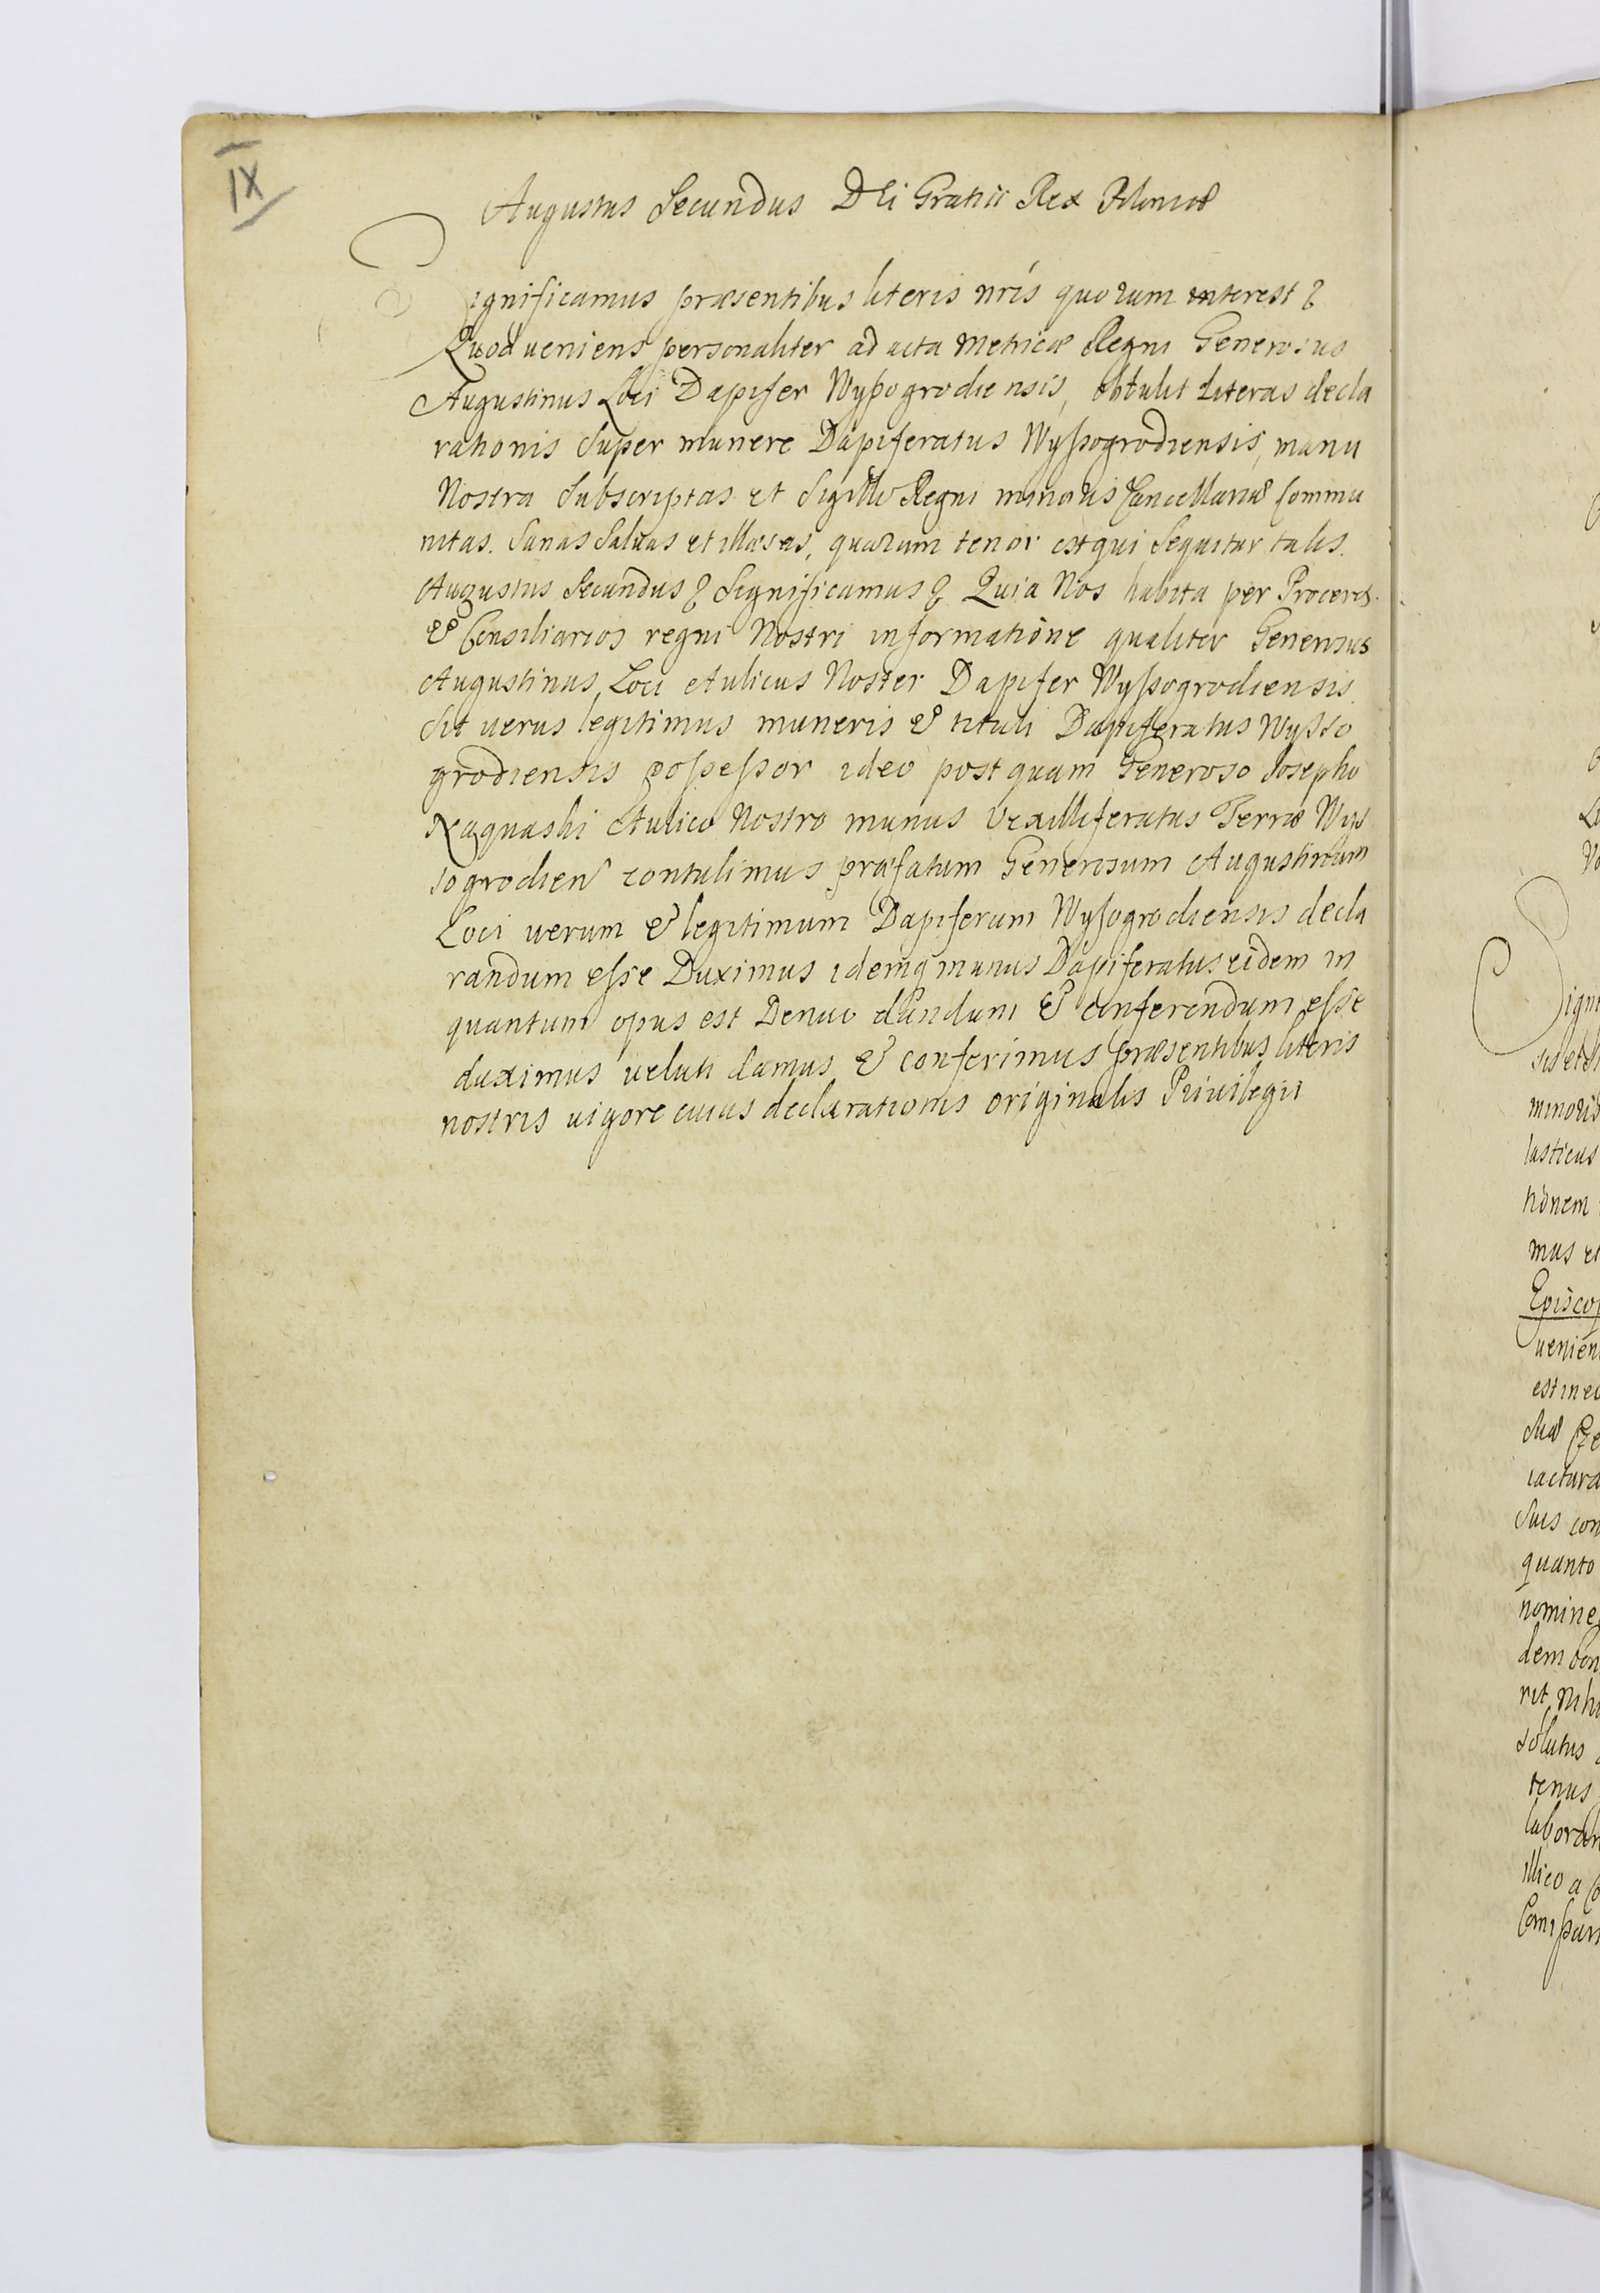 IX
Augustus Secundus DEi Gratia Rex Poloniæ
Significamus præsentibus literis nris quorum interest &
Quod ueniens personaliter ad acta Metricæ Regni Generosus
Augustinus Loci Dapifer Wyszogrodiensis, obtulit Literas decla
rationis Super munere Dapiferatus Wyszogrodiensis, manu
Nostra Subscriptas et Sigillo Regni minoris Cancellariæ Commu
nitas. Sanas Saluas et illæsas, quarum tenor est qui Sequitur talis.
Augustus Secundus & Significamus & Quia Nos habita per Proceres
& Consiliarios regni Nostri informatione qualiter Generosus
Augustinus Loci Aulicus Noster Dapifer Wyszogrodiensis
Sit uerus legitimus muneris & tituli Dapiferatus Wysso
grodiensis possessor ideo postquam Generoso Josepho
Naquaski Aulico Nostro munus Vexilliferatus Terræ Wys
sogrodien contulimus præfatum Generosum Augustinum
Loci uerum & legitimum Dapiferum Wyszogrodiensis decla
randum esse Duximus idemq munus Dapiferatus eidem in
quantum opus est Denuo dandum & conferendum esse
duximus ueluti damus & conferimus præsentibus literis
nostris uigore cuius declarationis originalis Priuilegii
minoris
lasticus
tionem
mus et
Episcop
uenien
est in e
iactura
Suis con
quanto
nomine
dem
solutus
tenus
illico a